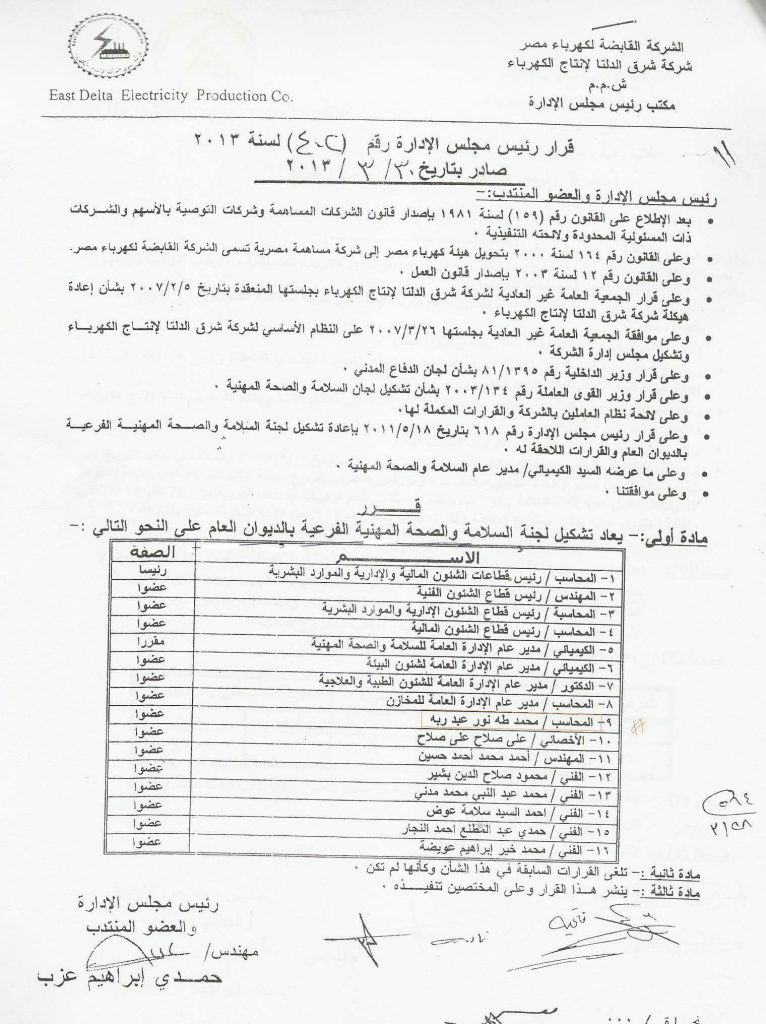 الشركة القابضة لكهرباء مصر
شركة شرق الدلتا لإنتاج الكهرباء
ش.م.م
مكتب رئيس مجلس الإدارة
East Delta Electricity Production Co.
قرار رئيس مجلس الإدارة رقم (٤٠٢) لسنة ٢٠١٣
صادر بتاريخ ٣٠/ ٣/ ٢٠١٣
رئيس مجلس الإدارة والعضو المنتدب:-
• بعد الإطلاع على القانون رقم (١٥٩) لسنة ١٩٨١ بإصدار قانون الشركات المساهمة وشركات التوصية بالأسهم والشركات
ذات المسئولية المحدودة ولائحته التنفيذية ٠
• وعلى القانون رقم ١٦٤ لسنة ٢٠٠٠ بتحويل هيئة كهرباء مصر إلى شركة مساهمة مصرية تسمى الشركة القابضة لكهرباء مصر.
• وعلى القانون رقم ١٢ لسنة ٢٠٠٣ بإصدار قانون العمل ٠
• وعلى قرار الجمعية العامة غير العادية لشركة شرق الدلتا لإنتاج الكهرباء بجلستها المنعقدة بتاريخ ٢٠٠٧/٢/٥ بشأن إعادة
هيكلة شركة شرق الدلتا لإنتاج الكهرباء ٠
• وعلى موافقة الجمعية العامة غير العادية بجلستها ٢٠٠٧/٣/٢٦ على النظام الأساسي لشركة شرق الدلتا لإنتاج الكهرباء
وتشكيل مجلس إدارة الشركة ٠
• وعلى قرار وزير الداخلية رقم ٨١/١٣٩٥ بشأن لجان الدفاع المدني ٠
• وعلى قرار وزير القوى العاملة رقم ٢٠٠٣/١٣٤ بشأن تشكيل لجان السلامة والصحة المهنية ٠
• وعلى لائحة نظام العاملين بالشركة والقرارات المكملة لها٠
• وعلى قرار رئيس مجلس الإدارة رقم ٦١٨ بتاريخ ٢٠١١/٥/١٨ بإعادة تشكيل لجنة السلامة والصحة المهنية الفرعية
بالديوان العام والقرارات اللاحقة له ٠
• وعلى ما عرضه السيد الكيميائي/ مدير عام السلامة والصحة المهنية ٠
• وعلى موافقتنا ٠
قـــرر
مادة أولى:- يعاد تشكيل لجنة السلامة والصحة المهنية الفرعية بالديوان العام على النحو التالي :-
الاســـم الصفة
١- المحاسب / رئيس قطاعات الشئون المالية والإدارية والموارد البشرية رئيسا
٢- المهندس / رئيس قطاع الشئون الفنية عضوا
٣- المحاسبة / رئيس قطاع الشئون الإدارية والموارد البشرية عضوا
٤- المحاسب / رئيس قطاع الشئون المالية عضوا
٥- الكيميائي / مدير عام الإدارة العامة للسلامة والصحة المهنية مقررا
٦- الكيميائي / مدير عام الإدارة العامة لشئون البيئة عضوا
٧- الدكتور / مدير عام الإدارة العامة للشئون الطبية والعلاجية عضوا
٨- المحاسب / مدير عام الإدارة العامة للمخازن عضوا
٩- المحاسب / محمد طه نور عبد ربه عضوا
١٠- الأخصائي / على صلاح على صلاح عضوا
١١- المهندس / أحمد محمد أحمد حسين عضوا
١٢- الفني / محمود صلاح الدين بشير عضوا
١٣- الفني / محمد عبد النبي محمد مدني عضوا
١٤- الفني / احمد السيد سلامة عوض عضوا
١٥- الفني / حمدي عبد المطلع احمد النجار عضوا
١٦- الفني / محمد خير إبراهيم عويضة عضوا
مادة ثانية :- تلغى القرارات السابقة في هذا الشأن وكأنها لم تكن ٠
مادة ثالثة :- ينشر هذا القرار وعلى المختصين تنفيذه ٠
رئيس مجلس الإدارة
والعضو المنتدب
مهندس/
حمدي إبراهيم عزب